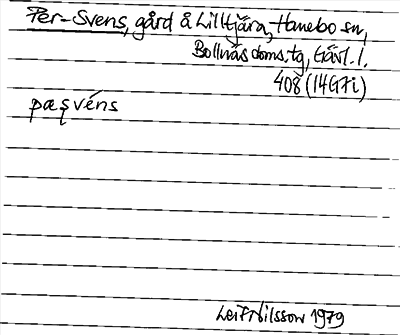 Per-Svens, gård å Lilltjära, Hanebo sn,
Bollnäs doms.tg, Gävl. l.
408 (14G7i)
pæșvéns
Leif Nilsson 1979